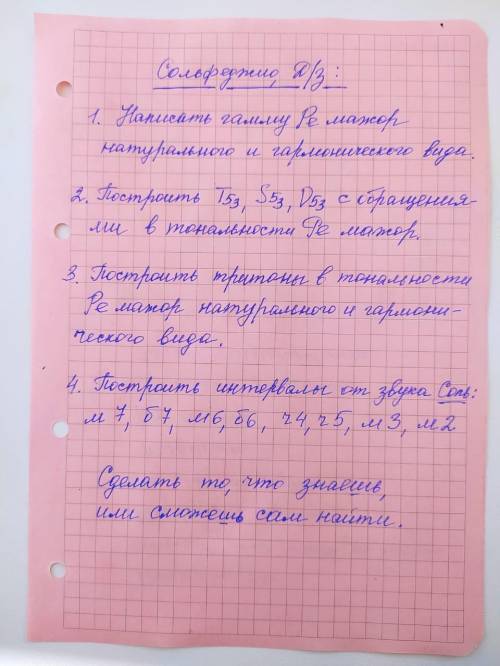 Сольфеджио, Д/з:
1. Написать гамму Ре мажор
натурального и гармонического вида.
2. Построить T53, S53, D53 с обращения-
ми в тональности Ре мажор.
3. Построить тритоны в тональности
Ре мажор натурального и гармони-
ческого вида.
4. Построить интервалы от звука Соль:
м7, б7, м6, б6, ч4, ч5, м3, м2
Сделать то, что знаешь,
или сможешь сам найти.